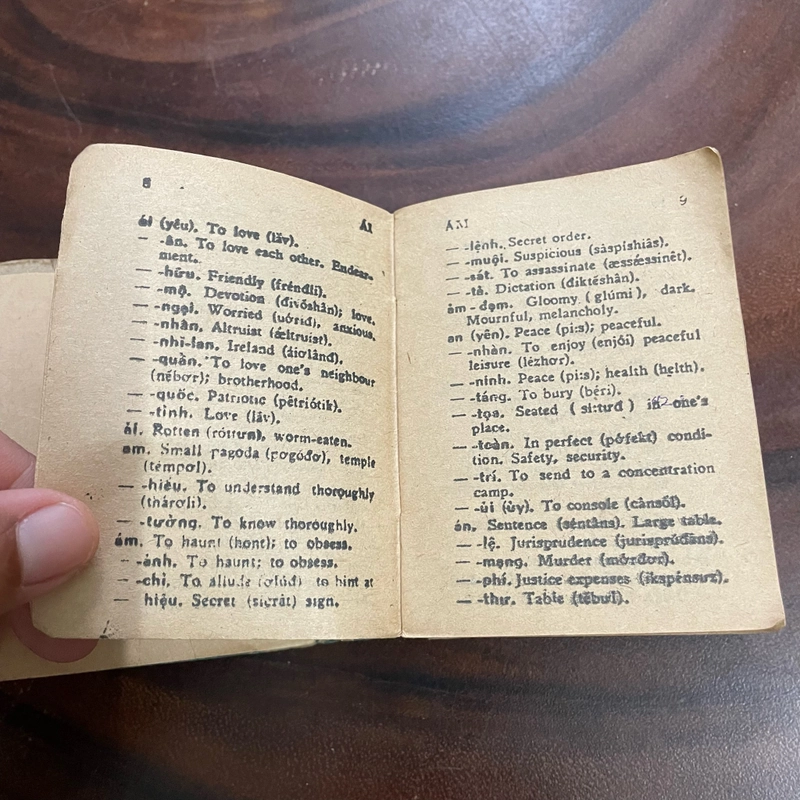 8
ÁI
ái (yêu). To love (lăv).
— -ân. To love each other. Endear-
ment.
— -hữu. Friendly (fréndli).
— -mộ. Devotion (divôshân); love.
— -ngại. Worried (uơrid), anxious.
— -nhân. Altruist (æltruist).
— -nhĩ-lan. Ireland (áiơlând).
— -quần. To love one's neighbour
(nêbơr); brotherhood.
— -quốc. Patriotic (pêtriótik).
— -tình. Love (lăv).
ải. Rotten (róttưn), worm-eaten.
am. Small pagoda (pơgóđơ), temple
(témpơl).
— -hiểu. To understand thoroughly
(thárơli).
— -tường. To know thoroughly.
ám. To haunt (hont); to obsess.
— -ảnh. To haunt; to obsess.
— -chỉ. To allude to hint at
— hiệu. Secret (sicrât) sign.
ÁM
9
— -lệnh. Secret order.
— -muội. Suspicious (sàspishiâs).
— -sát. To assassinate (æssæssinêt).
— -tả. Dictation (diktéshân).
ảm-đạm. Gloomy (glúmi), dark.
Mournful, melancholy.
an (yên). Peace (pi:s); peaceful.
— -nhàn. To enjoy (enjói) peaceful
leisure (lézhơr).
— -ninh. Peace (pi:s); health (helth).
— -táng. To bury (béri).
— -tọa. Seated (si:tưd) in one's
place.
— -toàn. In perfect (pơfekt) condi-
tion. Safety, security.
— -trí. To send to a concentration
camp.
— -ủi (ủy). To console (cànsôl).
án. Sentence (séntâns). Large table.
— -lệ. Jurisprudence (jurisprúđâns).
— -mạng. Murder (mơrđơr).
— -phí. Justice expenses (ikspénsưz).
— -thư. Table (têbưl).